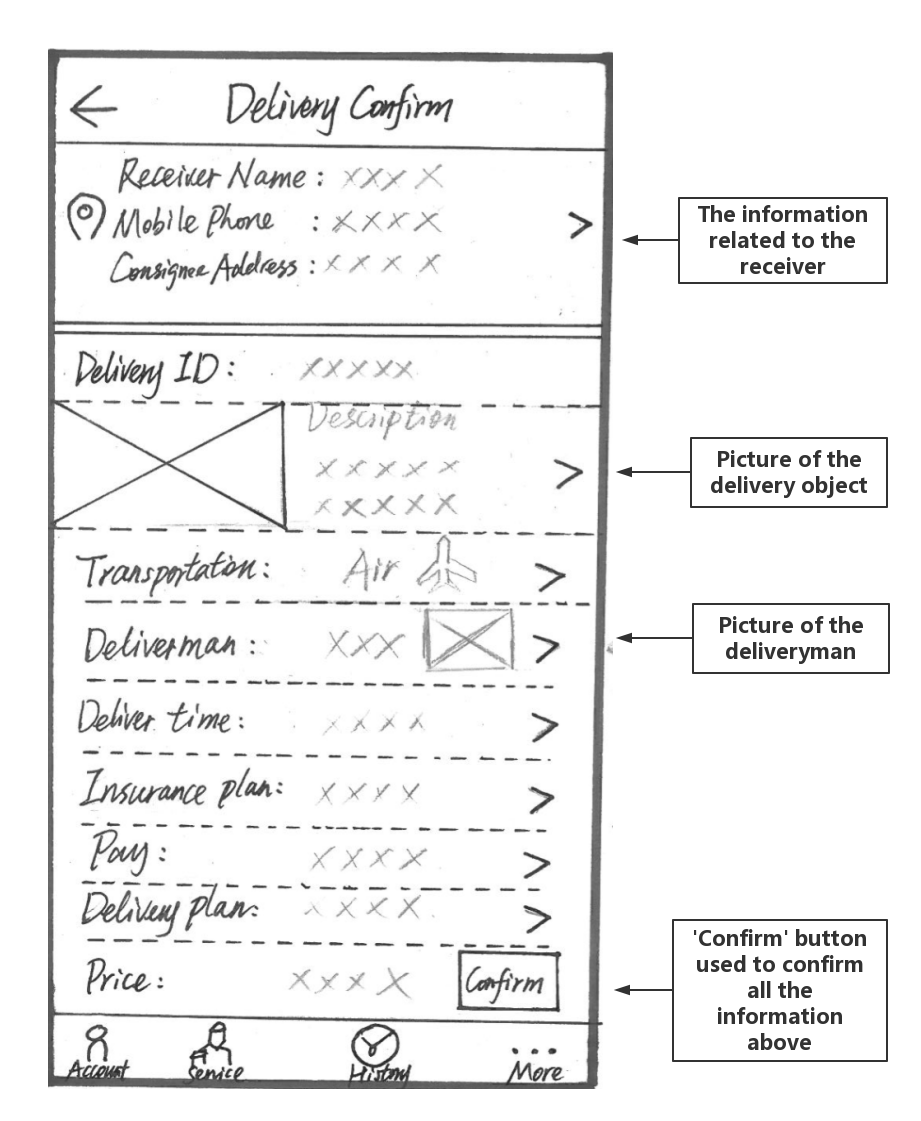 Delivery Confirm
Receiver Name : xxxx
Mobile Phone : xxxx
Consignee Address : xxxx
The information
related to the
receiver
Delivery ID : xxxxx
Description
xxxxx
xxxxx
Picture of the
delivery object
Transportation : Air
Deliverman : xxx
Picture of the
deliveryman
Deliver time : xxxx
Insurance plan : xxxx
Pay : xxxx
Delivery plan : xxxx
Price : xxxx Confirm
'Confirm' button
used to confirm
all the
information
above
Account Service History More